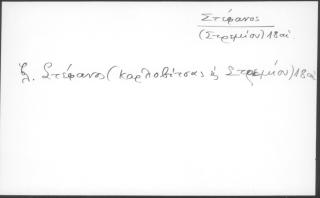 Στέφανος
(Στρεμίου) 18 αἰ.
βλ. Στέφανος (Καρλοβίτσας ἐς Στρεμίου) 18 αἰ